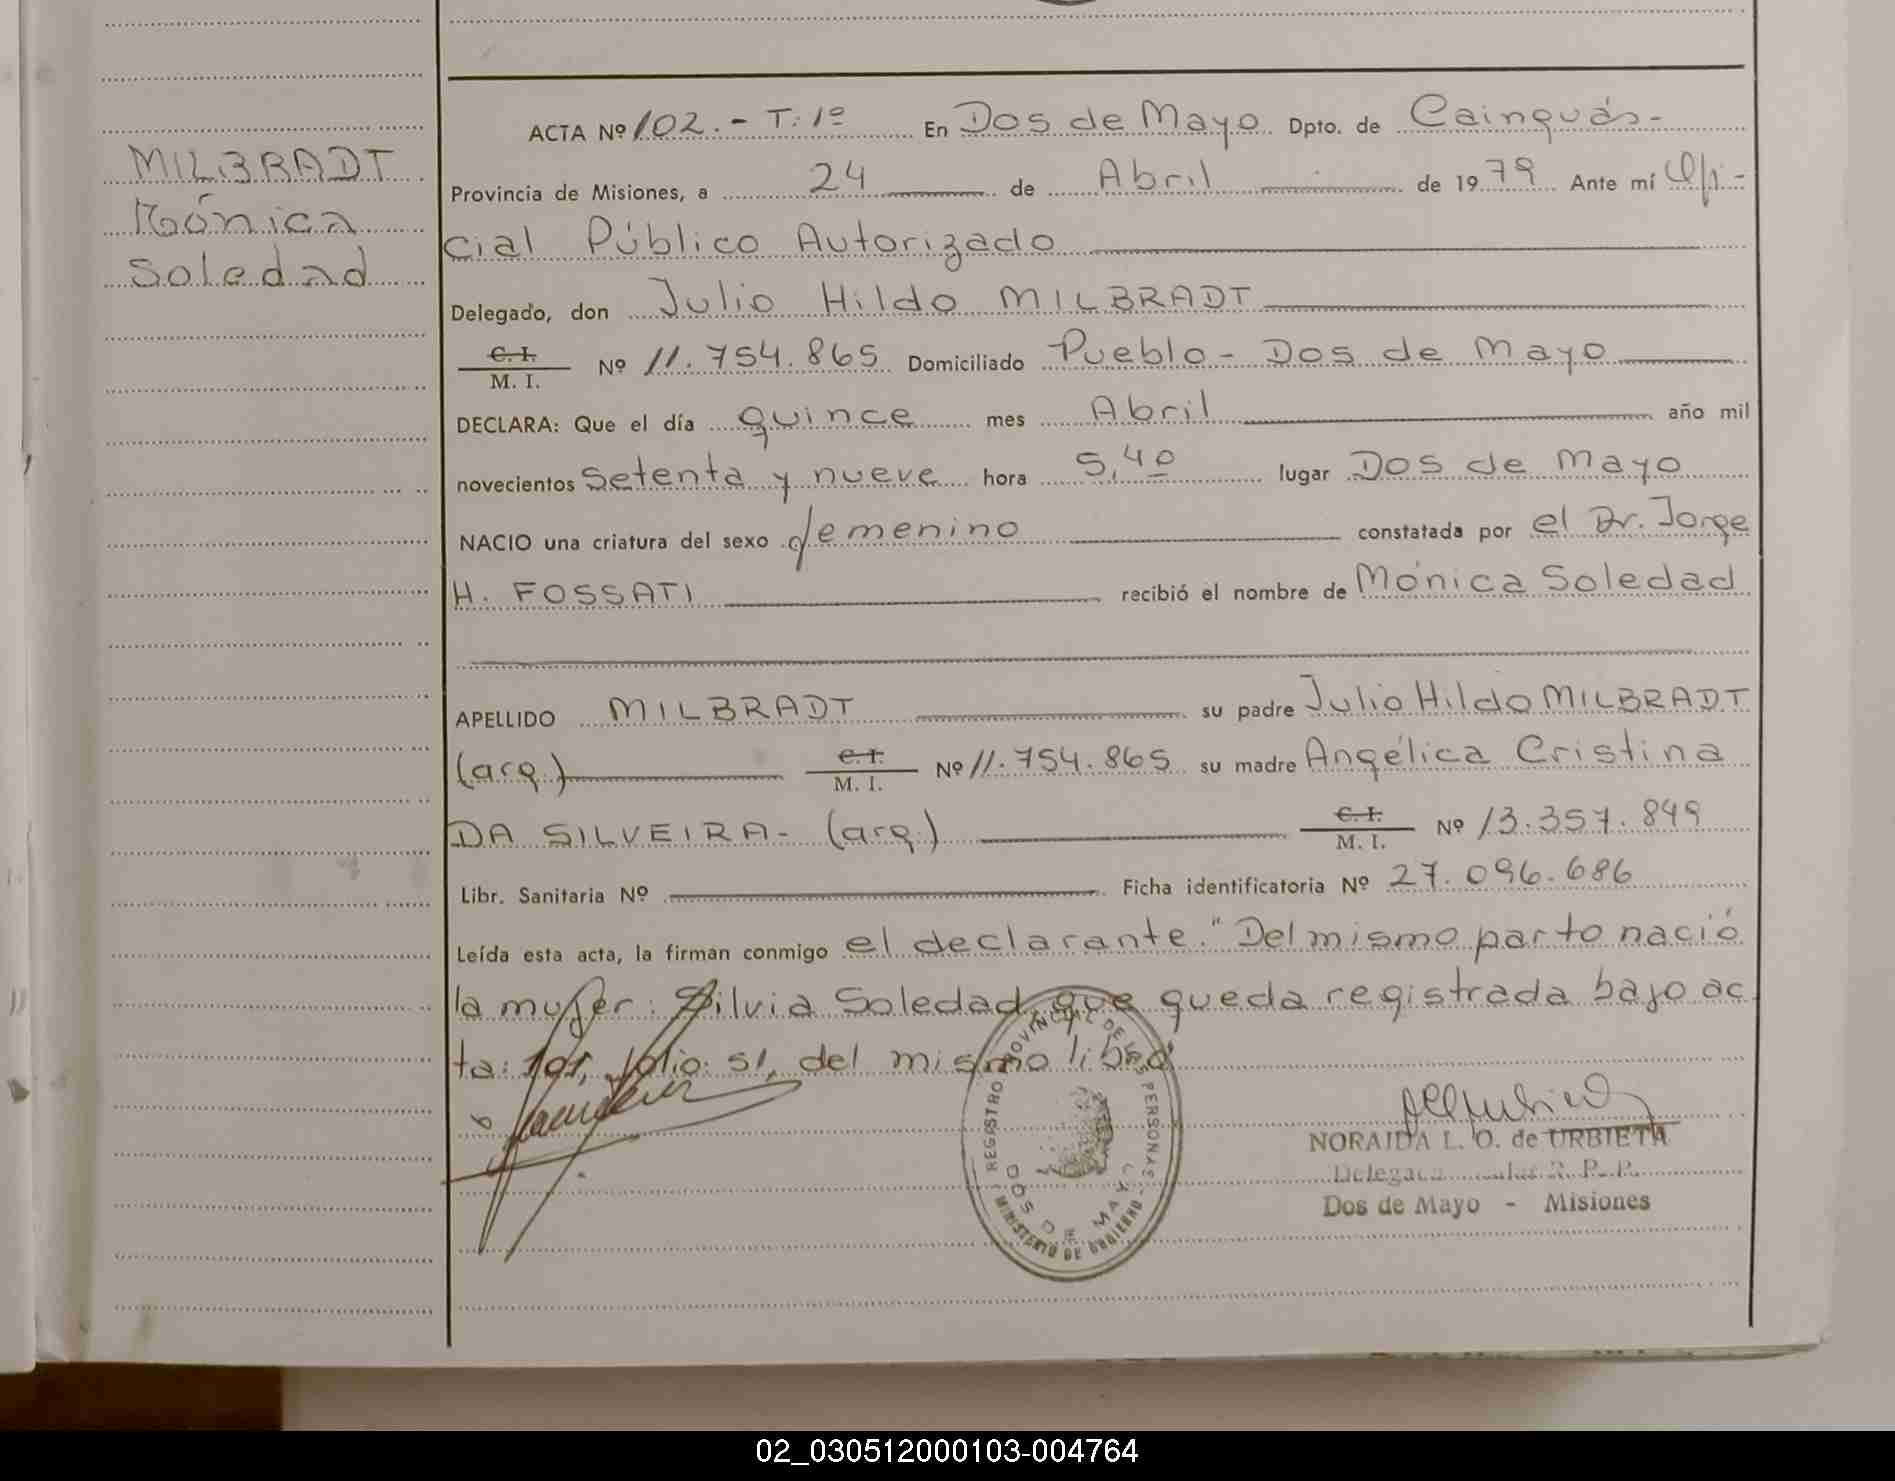 MILBRADT
Mónica
Soledad
ACTA Nº 102.- T: 1º En Dos de Mayo Dpto. de Cainguás-
Provincia de Misiones, a 24 de Abril de 1979 Ante mí Ofi-
cial Público Autorizado
Delegado, don Julio Hildo MILBRADT
C. I.
M. I. Nº 11.754.865 Domiciliado Pueblo - Dos de Mayo
DECLARA: Que el día quince mes Abril año mil
novecientos setenta y nueve hora 5,40 lugar Dos de Mayo
NACIO una criatura del sexo femenino constatada por el Dr. Jorge
H. FOSSATI recibió el nombre de Mónica Soledad
APELLIDO MILBRADT su padre Julio Hildo MILBRADT
(arg.) C. I.
M. I. Nº 11.754.865 su madre Angélica Cristina
DA SILVEIRA- (arg.) C. I.
M. I. Nº 13.357.849
Libr. Sanitaria Nº Ficha identificatoria Nº 27.096.686
Leída esta acta, la firman conmigo el declarante. "Del mismo parto nació
la mujer: Silvia Soledad que queda registrada bajo ac
ta: 101, folio: 51, del mismo libro
REGISTRO PROVINCIAL DE LAS PERSONAS
DOS DE MAYO
MINISTERIO DE GOBIERNO
NORAIDA L. O. de URBIETA
Delegada R. P. P.
Dos de Mayo - Misiones
02_030512000103-004764